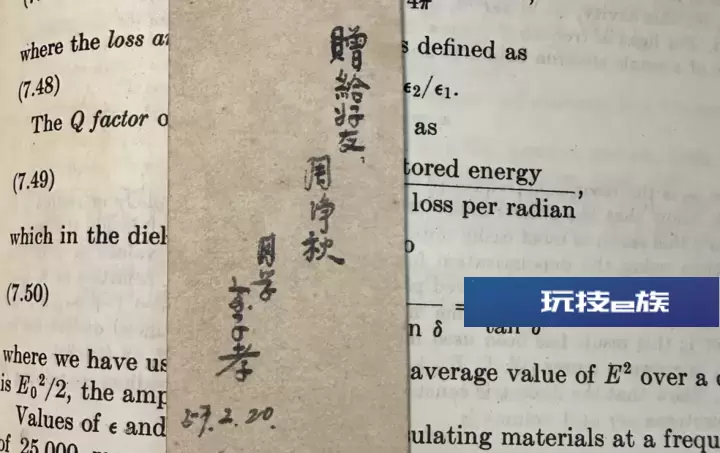 where the loss a
s defined as
(7.48)
ϵ₂/ϵ₁.
The Q factor o
as
(7.49)
tored energy
loss per radian
which in the diel
(7.50)
n δ
tan δ
where we have us
average value of E² over a
is E₀²/2, the amp
Values of ϵ and
ulating materials at a frequ
of 25,000
贈給好友
周净秋
同学
57.2.20.
玩技e族